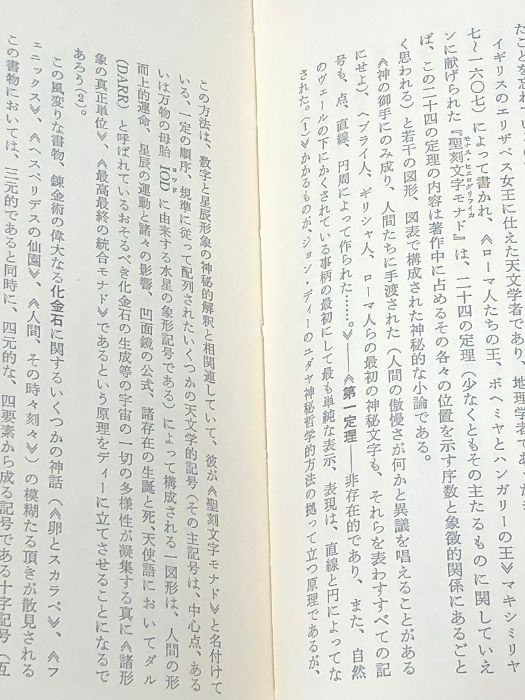 たことを忘れ
イギリスのエリザベス女王に仕えた天文学者であり、地理学者であ
七〜一六〇七）によって書かれ、《ローマ人たちの王、ボヘミヤとハンガリーの王》マキシミリヤ
ンに献げられた『聖刻文字モナド』は、二十四の定理（少なくともその主たるものに関していえ
ば、この二十四の定理の内容は著作中に占めるその各々の位置を示す序数と象徴的関係にあるごと
く思われる）と若干の図形、図表で構成された神秘的な小論である。
《神の御手にのみ成り、人間たちに手渡された（人間の傲慢さが何かと異議を唱えることがある
にせよ）、ヘブライ人、ギリシャ人、ローマ人らの最初の神秘文字も、それらを表わすすべての記
号も、点、直線、円周によって作られた……。》――《第一定理――非存在的であり、また、自然
のヴェールの下にかくされている事柄の最初にして最も単純な表示、表現は、直線と円によってな
された。（1）》かかるものが、ジョン・ディーのユダヤ神秘哲学的方法の拠って立つ原理であるが、
この方法は、数字と星辰形象の神秘的解釈と相関連していて、彼が《聖刻文字モナド》と名付けて
いる、一定の順序、規準に従って配列されたいくつかの天文学的記号（その主記号は、中心点、ある
いは万物の母胎 IOD に由来する水星の象形記号である）によって構成される一図形は、人間の形
而上的運命、星辰の運動と諸々の影響、凹面鏡の公式、諸存在の生誕と死、天使語においてダル
(DARR) と呼ばれているおそるべき化金石の生成等の宇宙の一切の多様性が凝集する真に《諸形
象の真正単位》、《最高最終の統合モナド》であるという原理をディーに立てさせることになるで
あろう（2）。
この風変りな書物、錬金術の偉大なる化金石に関するいくつかの神話（《卵とスカラベ》、《フ
ェニックス》、《ヘスペリデスの仙園》、《人間、その時々刻々》）の模糊たる頂きが散見される
この書物においては、三元的であると同時に、四元的な、四要素から成る記号である十字記号（互